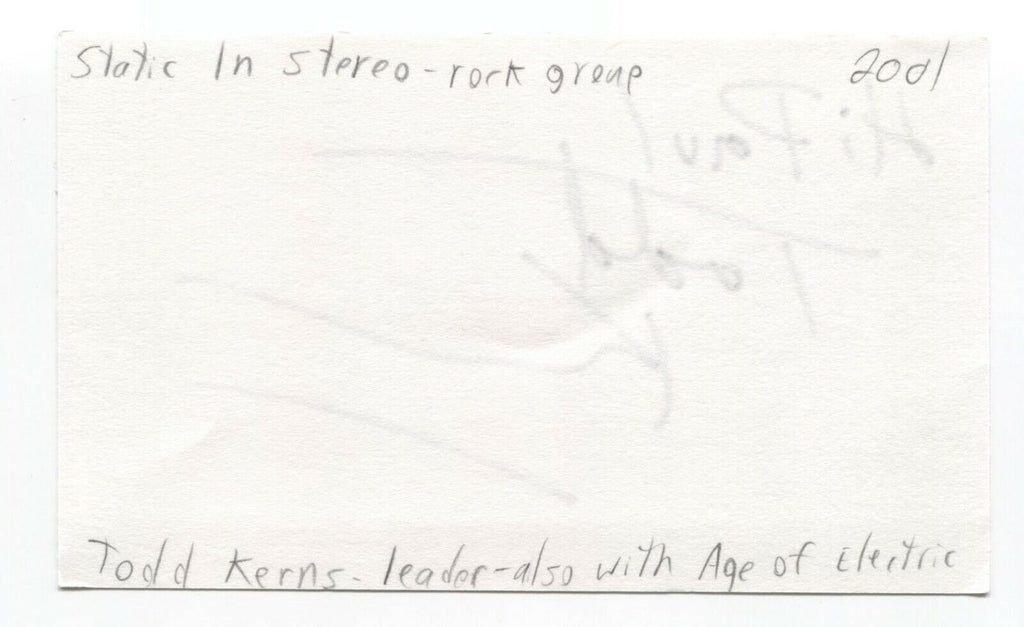 Static In Stereo - rock group 2001
Hi Paul
Todd
K
Todd Kerns - leader - also with Age of Electric